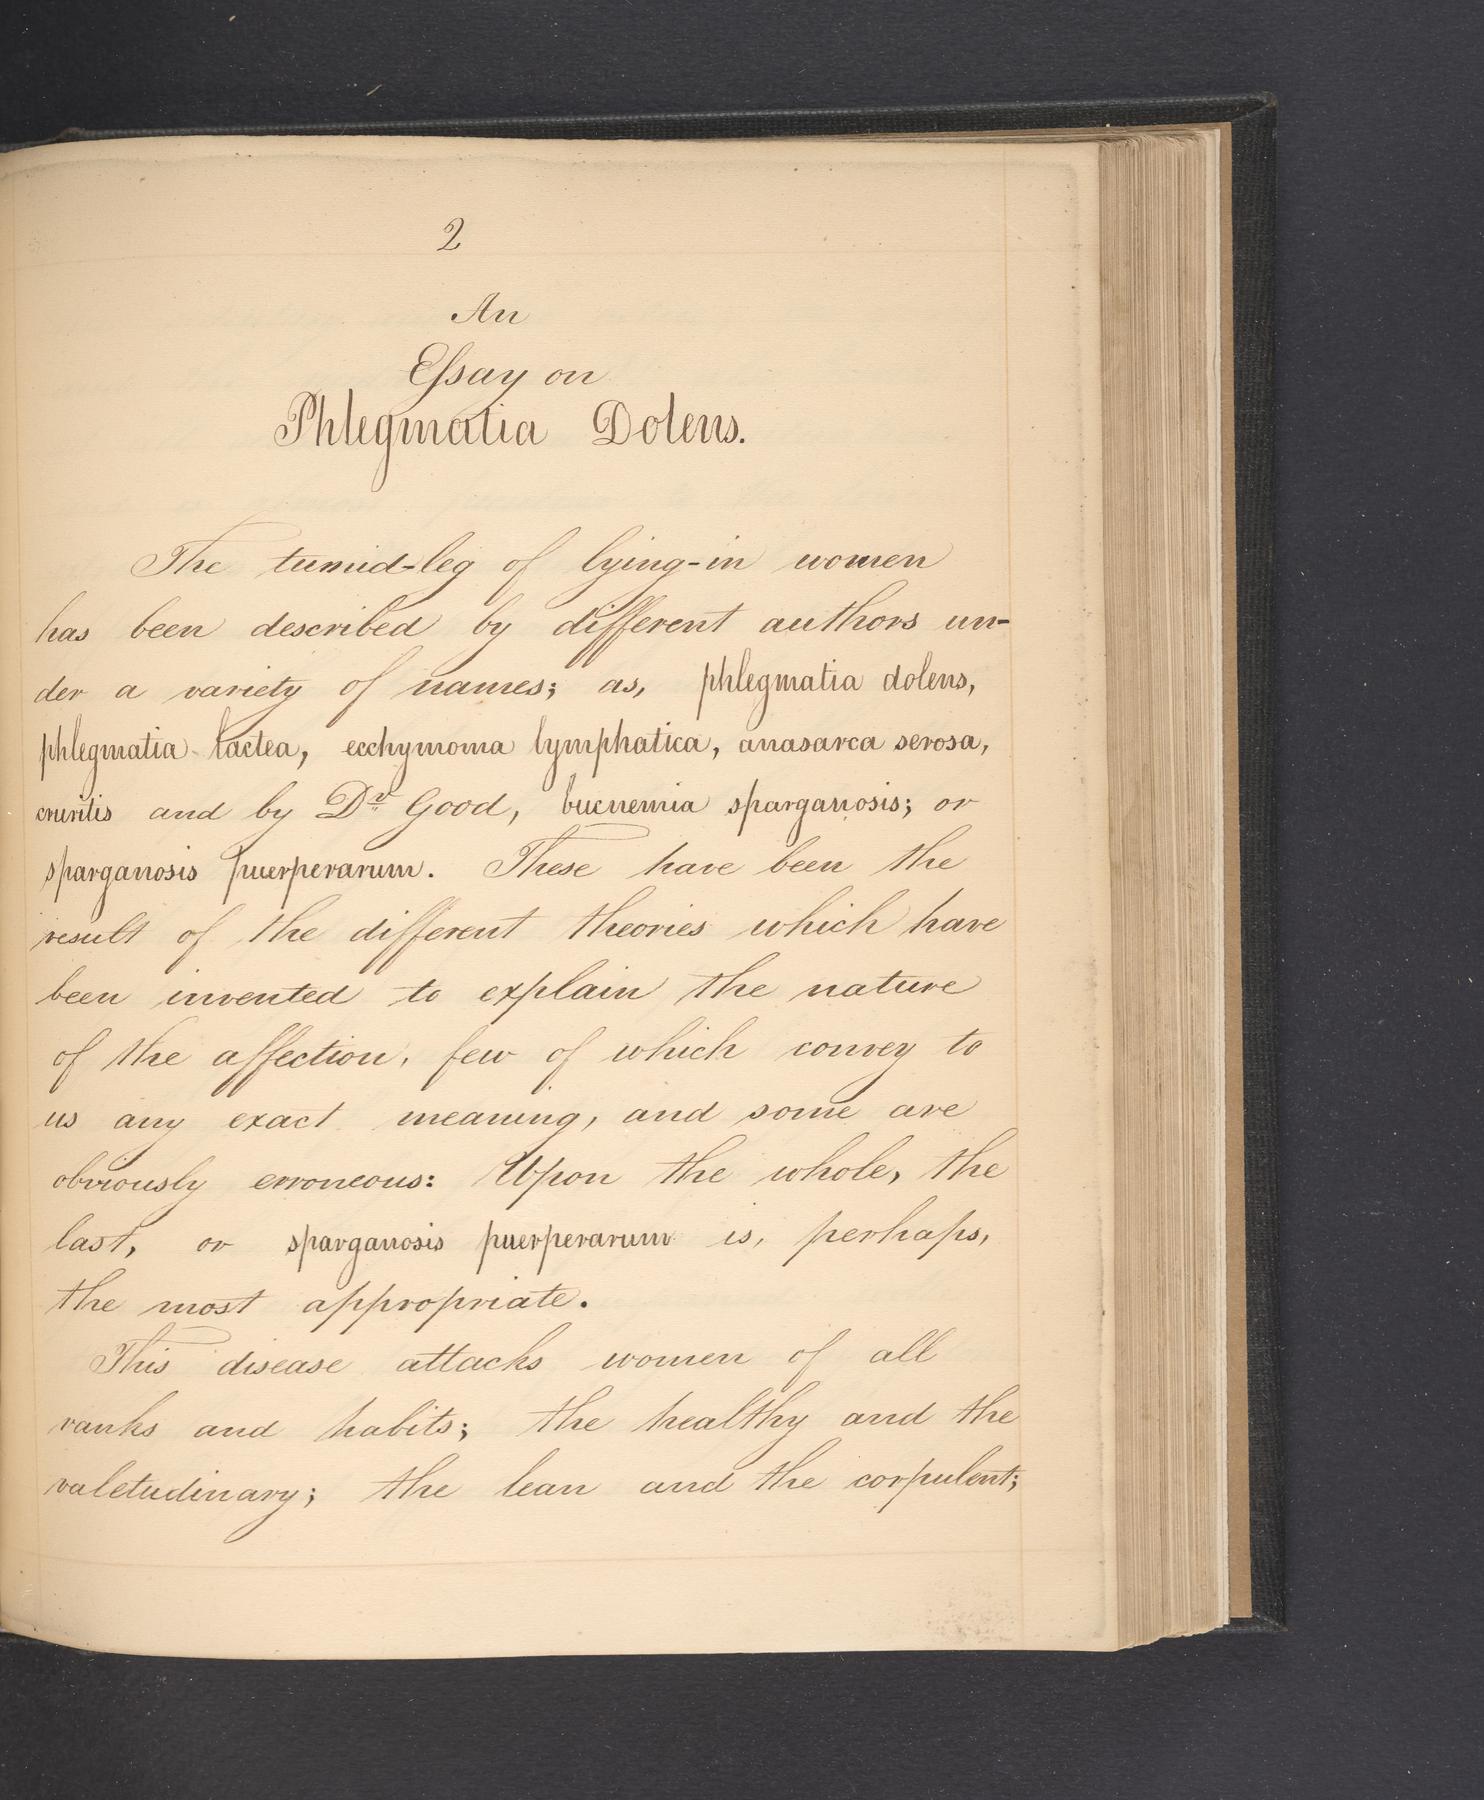 2
An
Essay on
Phlegmatia Dolens.
The tumid-leg of lying-in women
has been described by different authors un-
der a variety of names; as, phlegmatia dolens,
phlegmatia lactea, ecchymoma lymphatica, anasarca serosa,
cruritis and by Dr Good, bucnemia sparganosis; or
sparganosis puerperarum. These have been the
result of the different theories which have
been invented to explain the nature
of the affection, few of which convey to
us any exact meaning, and some are
obviously erroneous: Upon the whole, the
last, or sparganosis puerperarum is, perhaps,
the most appropriate.
This disease attacks women of all
ranks and habits; the healthy and the
valetudinary; the lean and the corpulent;